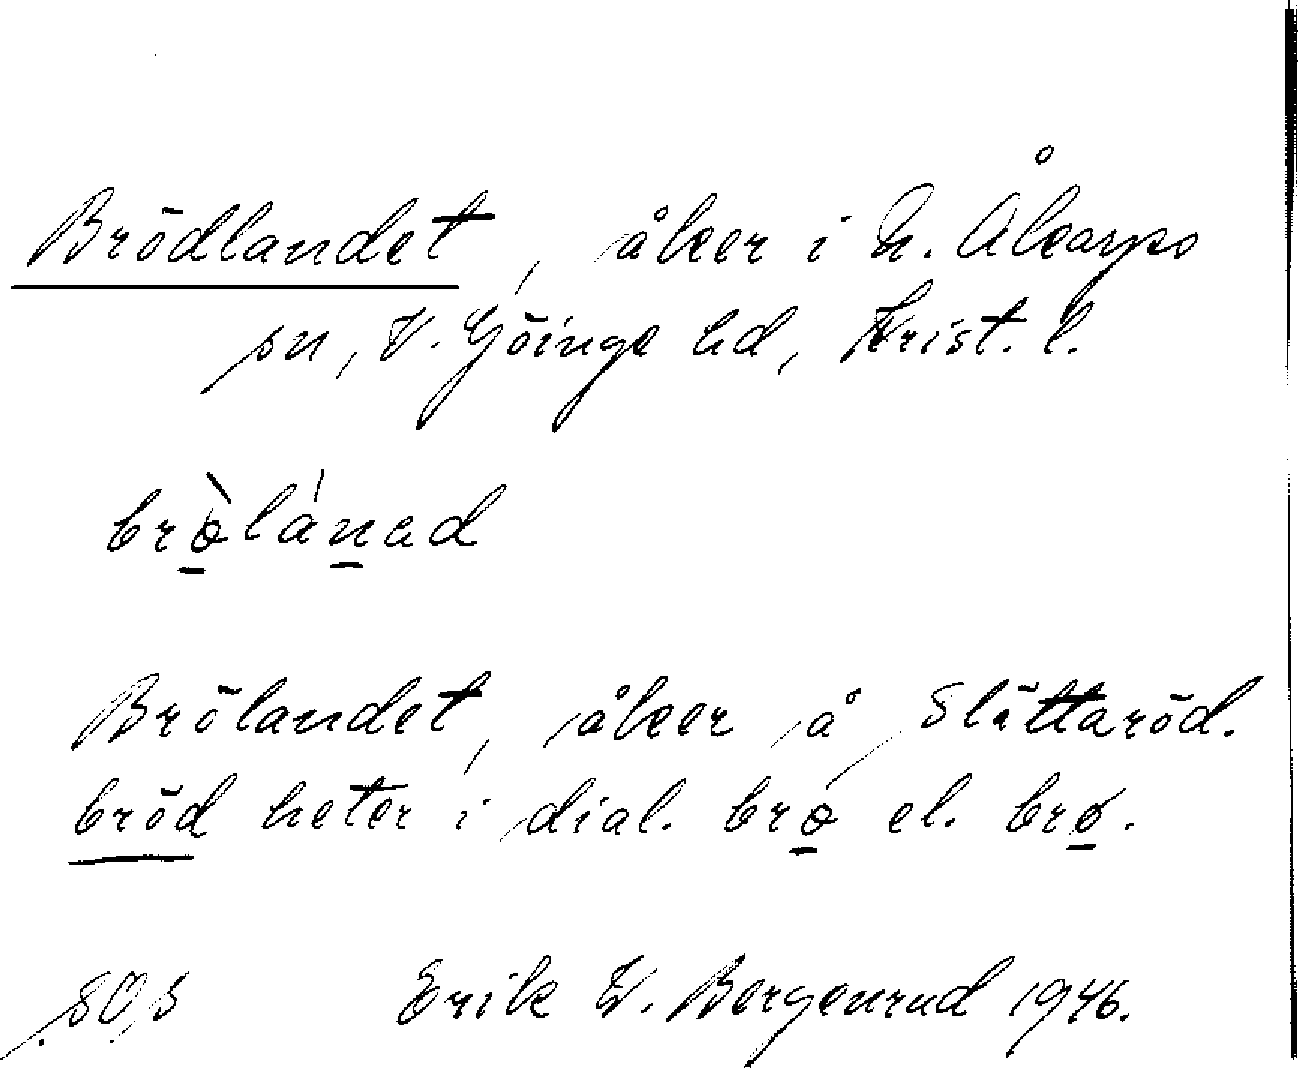 Brödlandet, åker i N. Åkarps
sn, V. Göinge hd, Krist. l.
bròlánad
Brölandet, åker å Slättaröd.
bröd heter i dial. brø el. brø.
Erik W. Bergenrud 1946.